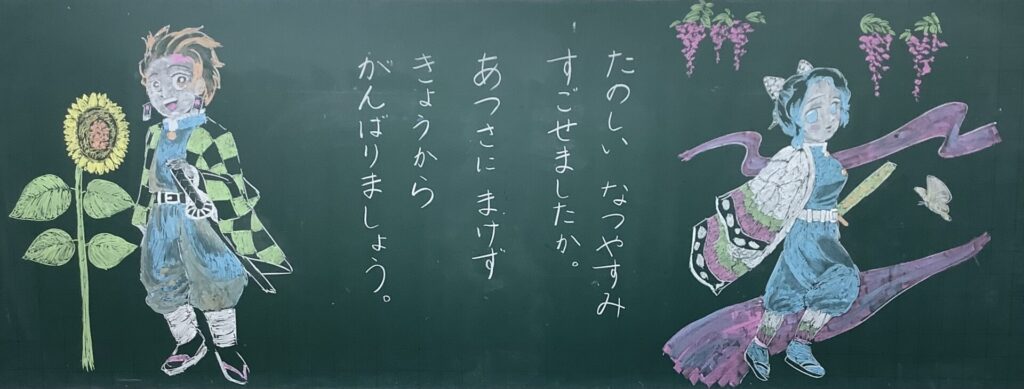 たのしい なつやすみ
すごせましたか。
あつさに まけず
きょうから
がんばりましょう。